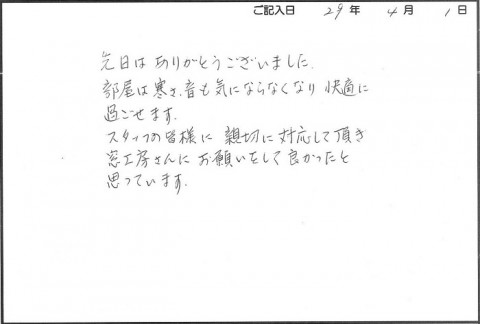 ご記入日 29年 4月 1日
先日は ありがとうございました.
部屋は寒さ、音も気にならなくなり 快適に
過ごせます.
スタッフの皆様に 親切に対応して頂き
窓工房さんに お願いをして良かったと
思っています.